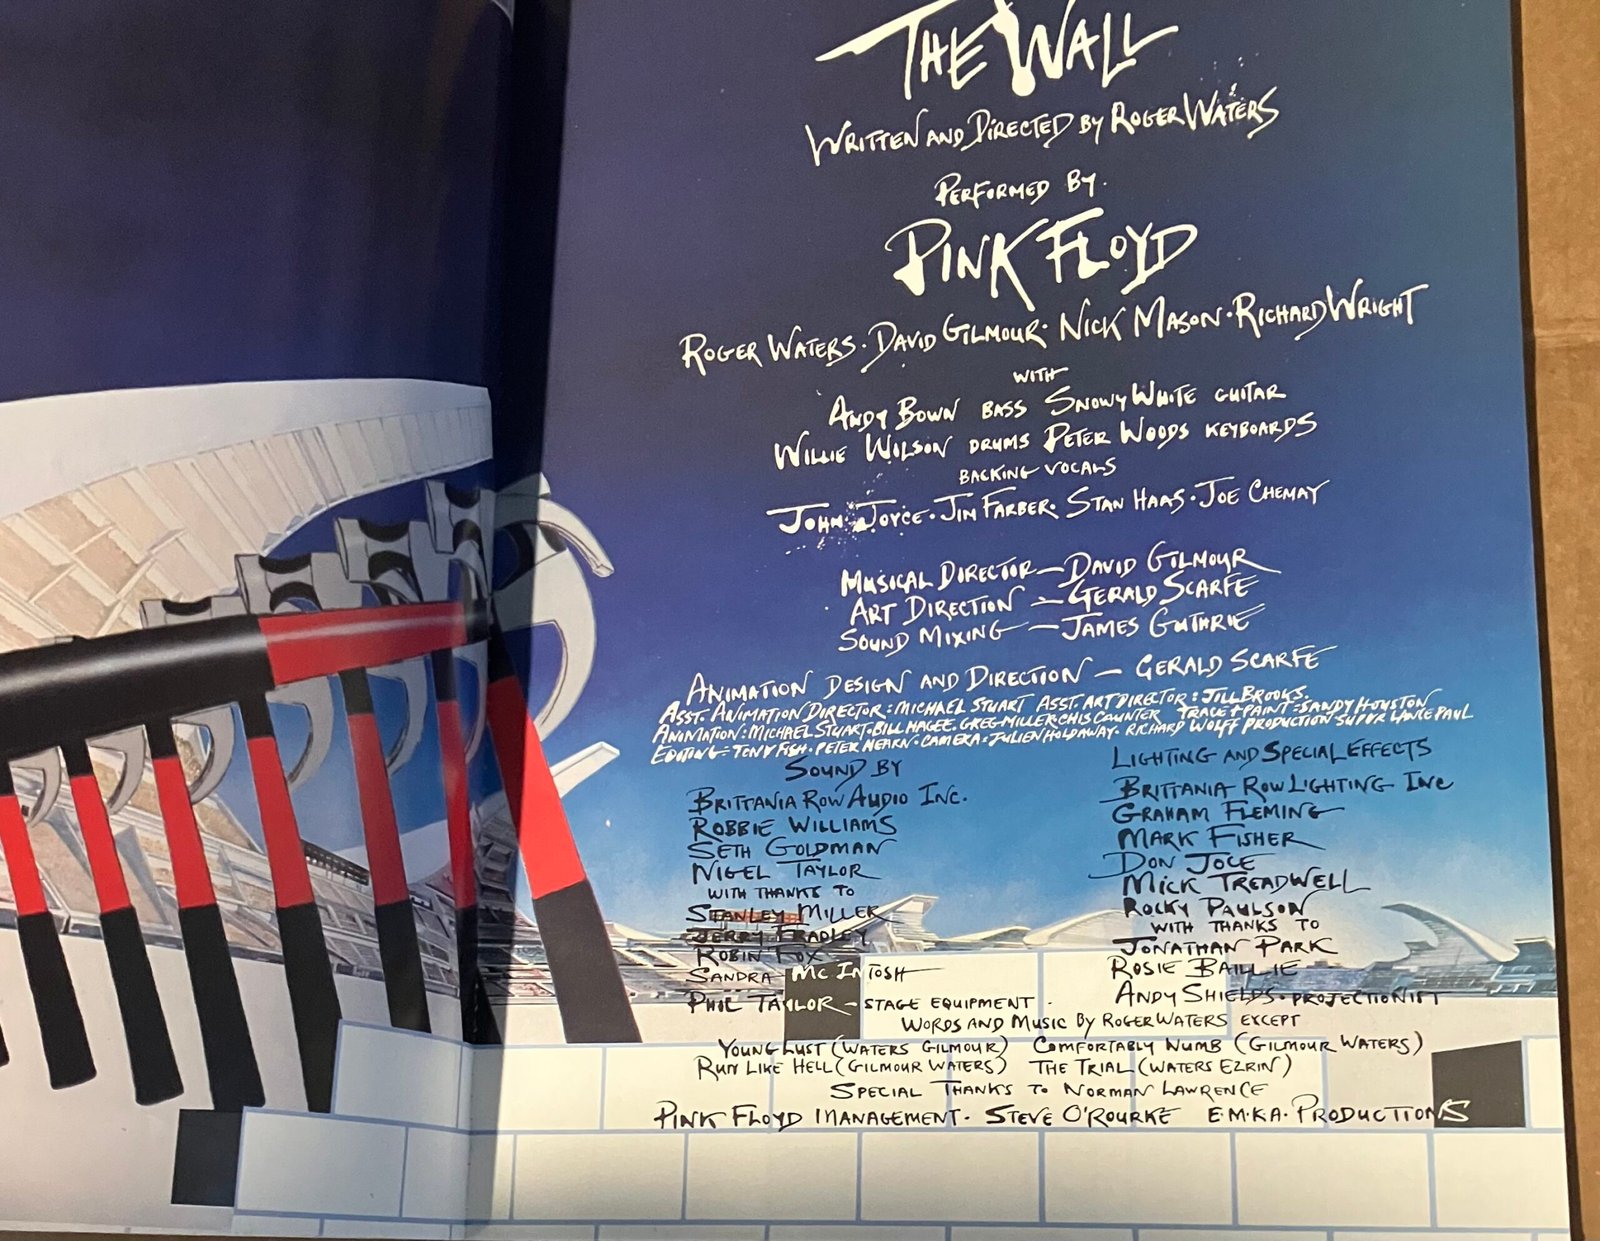 THE WALL
WRITTEN AND DIRECTED BY ROGER WATERS
PERFORMED BY.
PINK FLOYD
ROGER WATERS · DAVID GILMOUR · NICK MASON · RICHARD WRIGHT
WITH
ANDY BOWN BASS SNOWY WHITE GUITAR
WILLIE WILSON DRUMS PETER WOODS KEYBOARDS
BACKING VOCALS
JOHN JOYCE · JIM FARBER · STAN HAAS · JOE CHEMAY
MUSICAL DIRECTOR — DAVID GILMOUR
ART DIRECTION — GERALD SCARFE
SOUND MIXING — JAMES GUTHRIE
ANIMATION DESIGN AND DIRECTION — GERALD SCARFE
ASST. ANIMATION DIRECTOR : MICHAEL STUART ASST. ART DIRECTOR : JILL BROOKS.
ANIMATION : MICHAEL STUART · BILL HAGEE · GREG MILLER · CHIS CAUNTER TRACE + PAINT = SANDY HOUSTON
EDITING = TONY FISH · PETER HEARN · CAMERA · JULIEN HOLDAWAY · RICHARD WOLFF PRODUCTION SUPVR LANCE PAUL
SOUND BY
BRITTANIA ROW AUDIO INC.
ROBBIE WILLIAMS
SETH GOLDMAN
NIGEL TAYLOR
WITH THANKS TO
STANLEY MILLER
JERRY FRADLEY
ROBIN FOX
SANDRA MC INTOSH
PHIL TAYLOR — STAGE EQUIPMENT .
LIGHTING AND SPECIAL EFFECTS
BRITTANIA ROW LIGHTING INC
GRAHAM FLEMING
MARK FISHER
DON JOCE
MICK TREADWELL
ROCKY PAULSON
WITH THANKS TO
JONATHAN PARK
ROSIE BAILLIE
ANDY SHIELDS · PROJECTIONIST
WORDS AND MUSIC BY ROGER WATERS EXCEPT
YOUNG LUST (WATERS GILMOUR) COMFORTABLY NUMB (GILMOUR WATERS)
RUN LIKE HELL (GILMOUR WATERS) THE TRIAL (WATERS EZRIN)
SPECIAL THANKS TO NORMAN LAWRENCE
PINK FLOYD MANAGEMENT · STEVE O'ROURKE E·M·KA · PRODUCTIONS